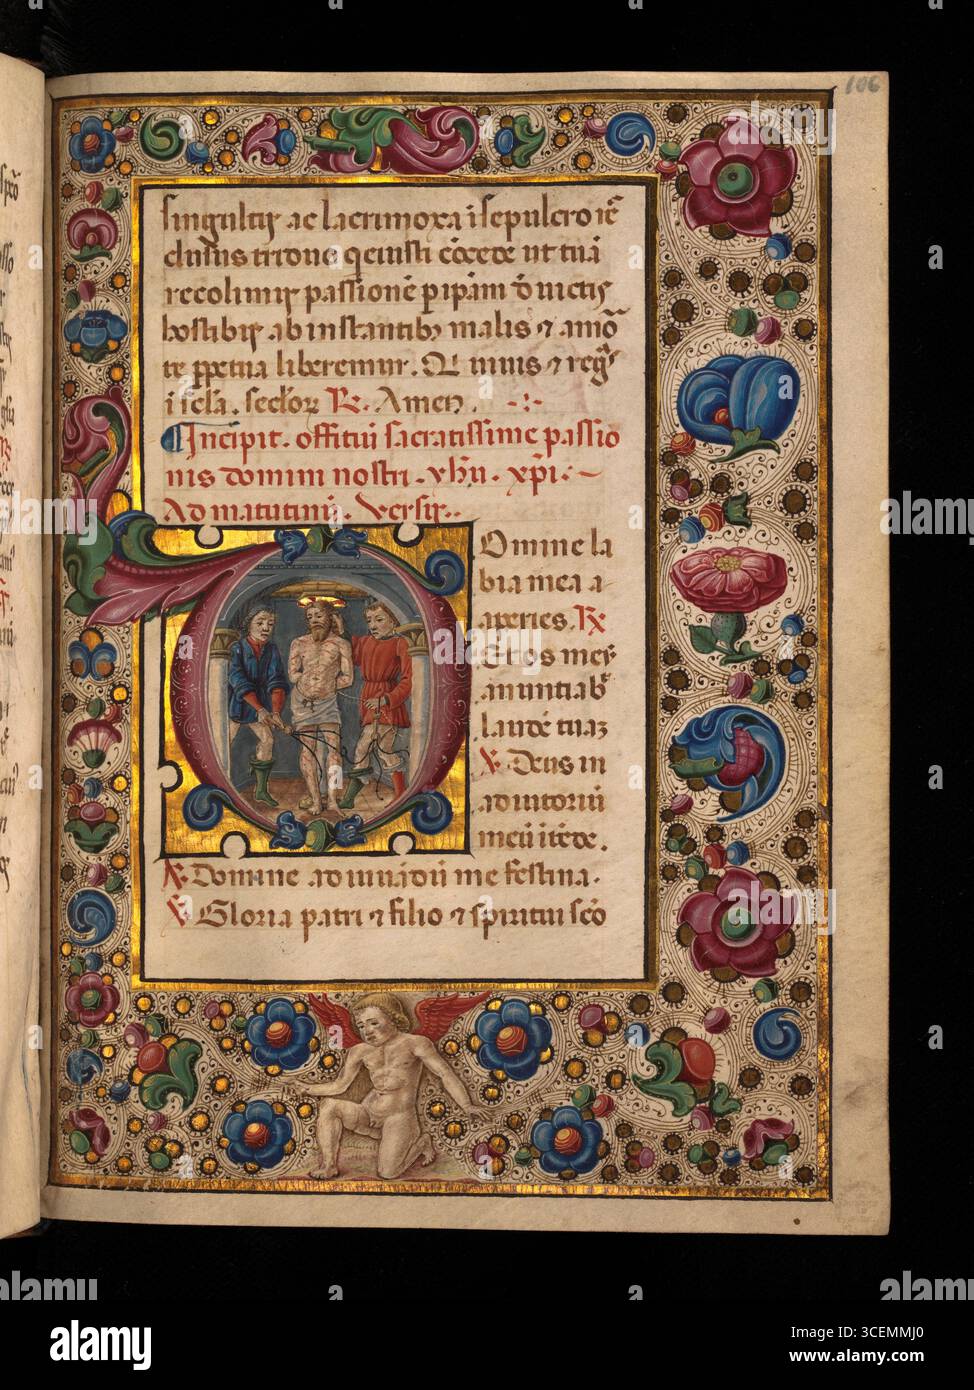 106
singultꝫ ac lacrimoxa i sepulcro iē
clusus tridue qeiusti cōcede ut tuā
recolimꝫ passionē p ipām ō uictꝫ
hostibꝫ ab instantibꝫ malis ⁊ a mō
te ppetua liberemur. Q uiuis ⁊ regꝫ
i scła. secłoꝝ ℟. Amen.
Incipit. offitiū sacratissime passio
nis domini nostri. yhu. xp̄i.
Ad matutinū. Versꝫ.
Omine la
bia mea a
aperies. ℟
Et os meū
anuntiabꝫ
laudē tuaꝫ
℣. Deus in
adiutoriū
meū itēde.
℟. Domine ad iuuādū me festina.
℣. Gloria patri ⁊ filio ⁊ spiritui scō
alamy
Image ID: 3CEMMJ0
www.alamy.com